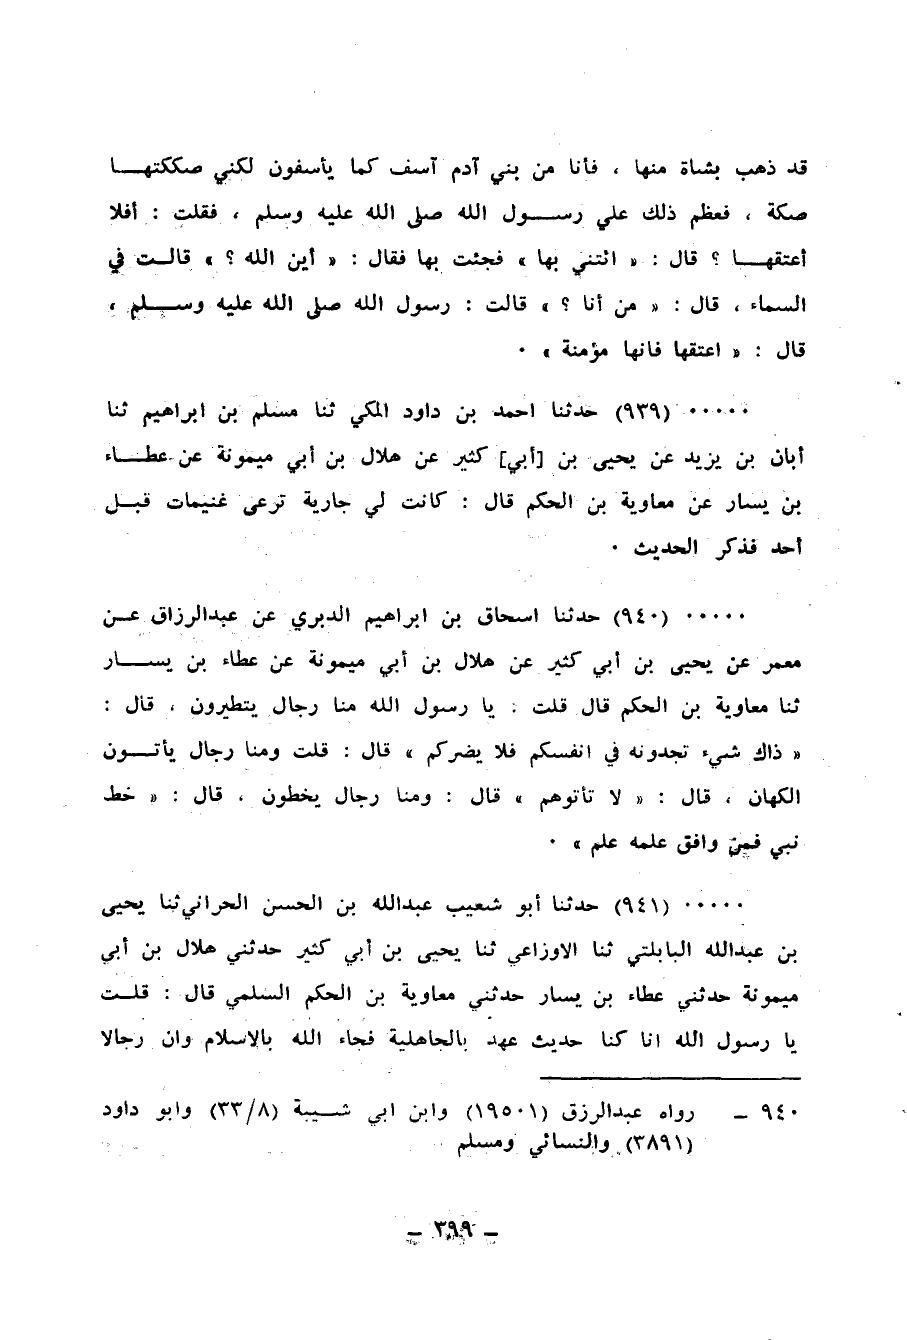 قد ذهب بشاة منها ، فأنا من بني آدم آسف كما يأسفون لكني صككتهـــا
صكة ، فعظم ذلك علي رســـول الله صلى الله عليه وسلم ، فقلت : أفلا
أعتقهـــا ؟ قال : « ائتني بها » فجئت بها فقال : « أين الله ؟ » قالــت في
السماء ، قال : « من أنا ؟ » قالت : رسول الله صلى الله عليه وســـلم ،
قال : « اعتقها فانها مؤمنة » ٠
٠٠٠٠٠ (٩٣٩) حدثنا احمد بن داود المكي ثنا مسلم بن ابراهيم ثنا
أبان بن يزيد عن يحيى بن [أبي] كثير عن هلال بن أبي ميمونة عن عطـــاء
بن يسار عن معاوية بن الحكم قال : كانت لي جارية ترعى غنيمات قبــل
أحد فذكر الحديث ٠
٠٠٠٠٠ (٩٤٠) حدثنا اسحاق بن ابراهيم الدبري عن عبدالرزاق عــن
معمر عن يحيى بن أبي كثير عن هلال بن أبي ميمونة عن عطاء بن يســـار
ثنا معاوية بن الحكم قال قلت : يا رسول الله منا رجال يتطيرون ، قال :
« ذاك شيء تجدونه في انفسكم فلا يضركم » قال : قلت ومنا رجال يأتـــون
الكهان ، قال : « لا تأتوهم » قال : ومنا رجال يخطون ، قال : « خط
نبي فمن وافق علمه علم » ٠
٠٠٠٠٠ (٩٤١) حدثنا أبو شعيب عبدالله بن الحسن الحراني ثنا يحيى
بن عبدالله البابلتي ثنا الاوزاعي ثنا يحيى بن أبي كثير حدثني هلال بن أبي
ميمونة حدثني عطاء بن يسار حدثني معاوية بن الحكم السلمي قال : قلــت
يا رسول الله انا كنا حديث عهد بالجاهلية فجاء الله بالاسلام وان رجالا
٩٤٠ ــ رواه عبدالرزق (١٩٥٠١) وابن ابي شــيبة (٣٣/٨) وابو داود
(٣٨٩١) والنسائي ومسلم
ــ ٣٩٩ ــ